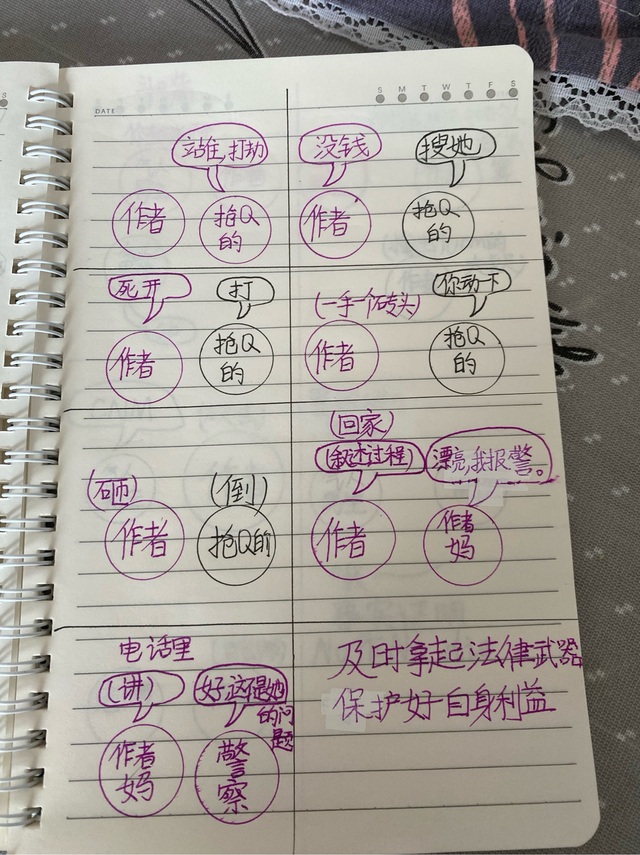 DATE
S M T W T F S
站住,打劫
作者
抢Q
的
没钱
搜她
作者
抢Q
的
死开
打
作者
抢Q
的
(一手一个砖头)
你动下
作者
抢Q
的
(砸)
(倒)
作者
抢Q的
(回家)
(叙述过程)
漂亮,我报警。
作者
作者
妈
电话里
(讲)
好这是她
的问
题
作者
妈
警
察
及时拿起法律武器
保护好自身利益